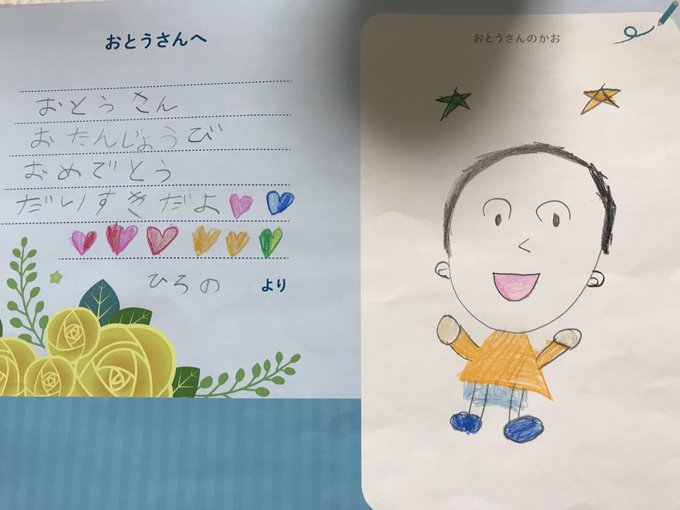 おとうさんへ
おとうさん
おたんじょうび
おめでとう
だいすきだよ
ひろの より
おとうさんのかお